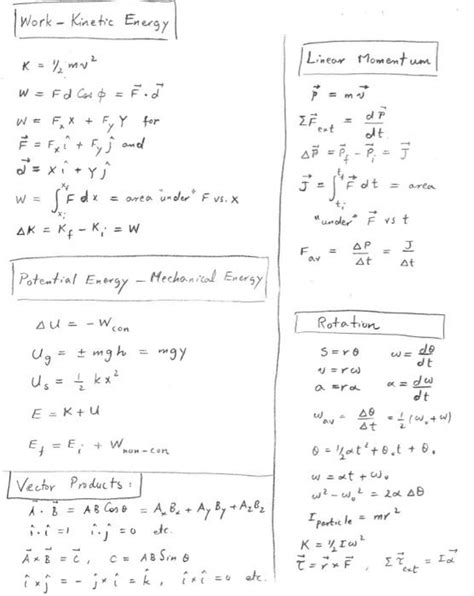 Work – Kinetic Energy
K = ½ mv²
W = Fd Cos φ = F⃗ · d⃗
W = Fₓ X + Fᵧ Y for
F⃗ = Fₓ î + Fᵧ ĵ and
d⃗ = X î + Y ĵ
W = ∫_{xᵢ}^{x_f} F dx = area "under" F vs. X
ΔK = K_f – Kᵢ = W
Potential Energy – Mechanical Energy
ΔU = –W_con
U_g = ± mgh = mgy
U_s = ½ kx²
E = K + U
E_f = Eᵢ + W_non-con
Vector Products:
A⃗ · B⃗ = AB Cos θ = AₓBₓ + AᵧBᵧ + A_zB_z
î · î = 1 î · ĵ = 0 etc.
A⃗ × B⃗ = C⃗, C = AB Sin θ
î × ĵ = – ĵ × î = k̂, î × î = 0 etc.
Linear Momentum
p⃗ = m v⃗
ΣF⃗_ext = dP⃗/dt
ΔP⃗ = P⃗_f – P⃗ᵢ = J⃗
J⃗ = ∫_{tᵢ}^{t_f} F⃗ dt = area
"under" F⃗ vs t
F_av = ΔP/Δt = J/Δt
Rotation
S = rθ ω = dθ/dt
v = rω
a = rα α = dω/dt
ω_av = Δθ/Δt = ½(ω₀ + ω)
θ = ½αt² + θ₀t + θ₀
ω = αt + ω₀
ω² – ω₀² = 2α Δθ
I_particle = mr²
K = ½ Iω²
τ⃗ = r⃗ × F⃗, Στ⃗_ext = Iα⃗